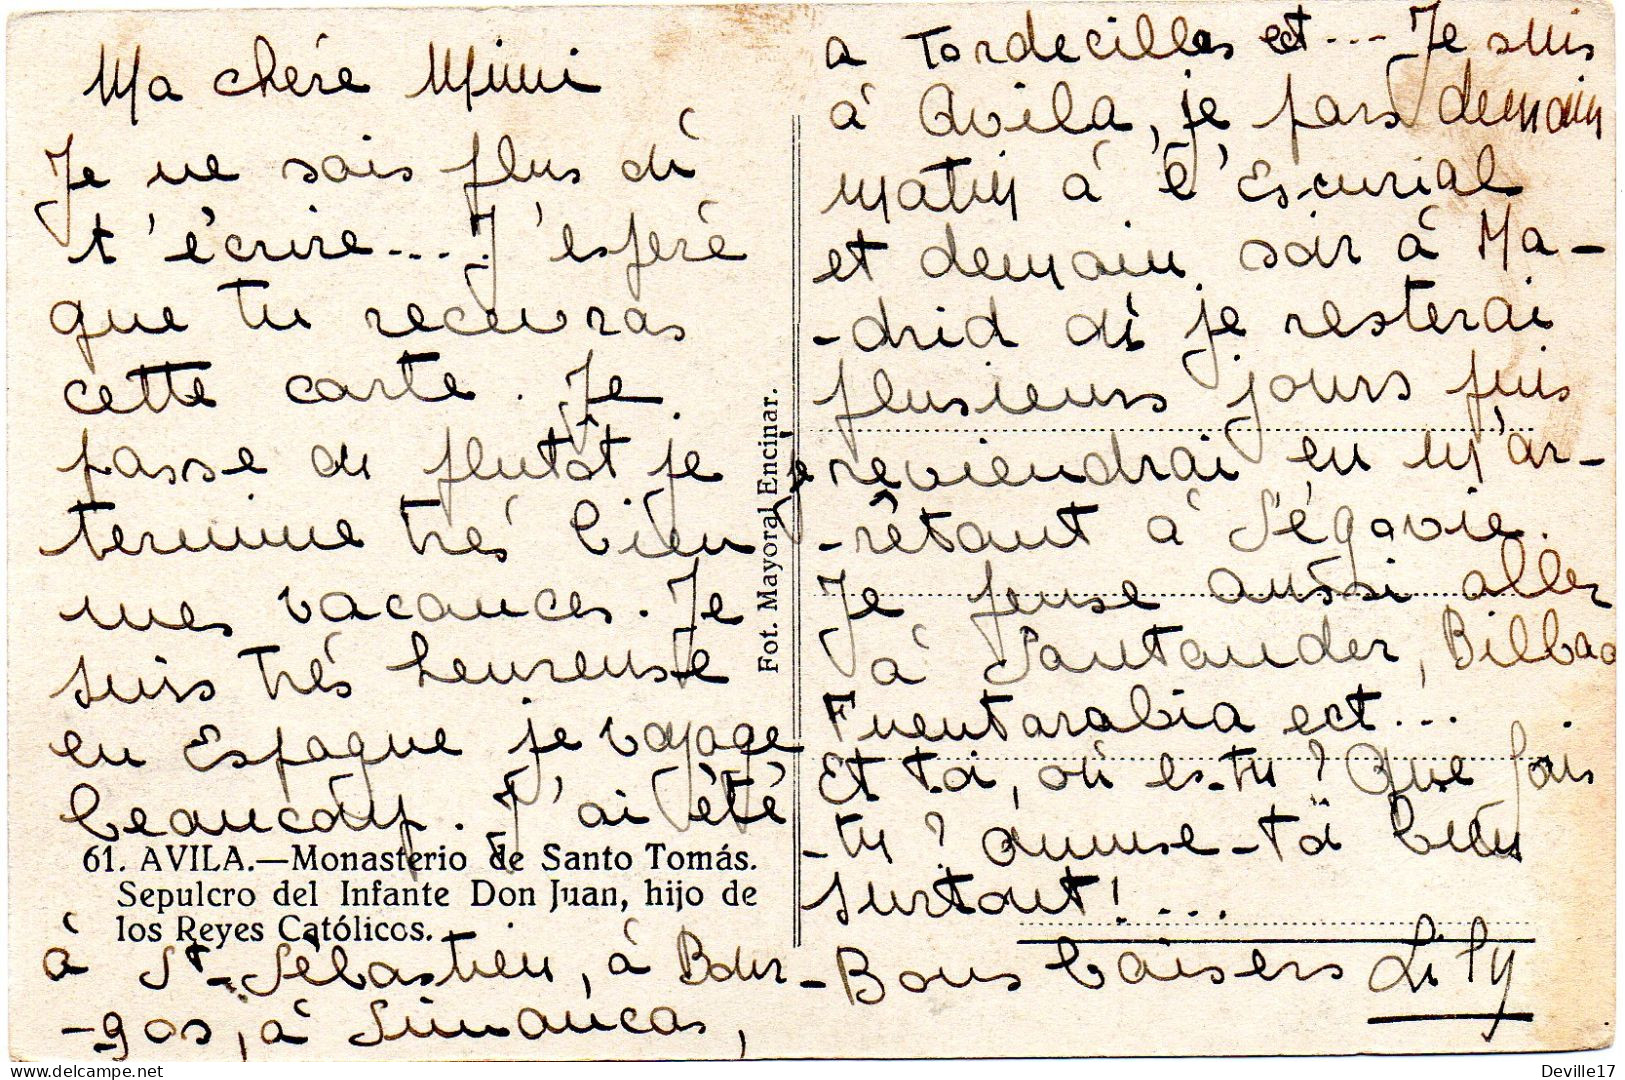 Ma chére Mimi
Je ne sais plus où
t'écrire.... J'esperè
que tu recevras
cette carte. Je
passe ou plutôt je
termine trés bien
mes vacances. Je
suis trés heureuse
en Espagne je voyage
beaucoup. J'ai été
61. AVILA.—Monasterio de Santo Tomás.
Sepulcro del Infante Don Juan, hijo de
los Reyes Católicos.
à St-Sébastien, à Bour-
-gos, à Simancas,
Fot. Mayoral Encinar.
a Tordecillas ect... Je suis
à Avila, je pars demain
matin à l'Escurial
et demain soir à Ma-
-drid où je resterai
plusieurs jours puis
je reviendrai en m'ar-
-rêtant à Ségovie.
Je pense aussi aller
à Santander, Bilbao
Fuentarabia ect...
Et toi, où es-tu? Que fais
-tu? Amuse-toi bien
surtout!...
-Bons baisers Lily
Deville17